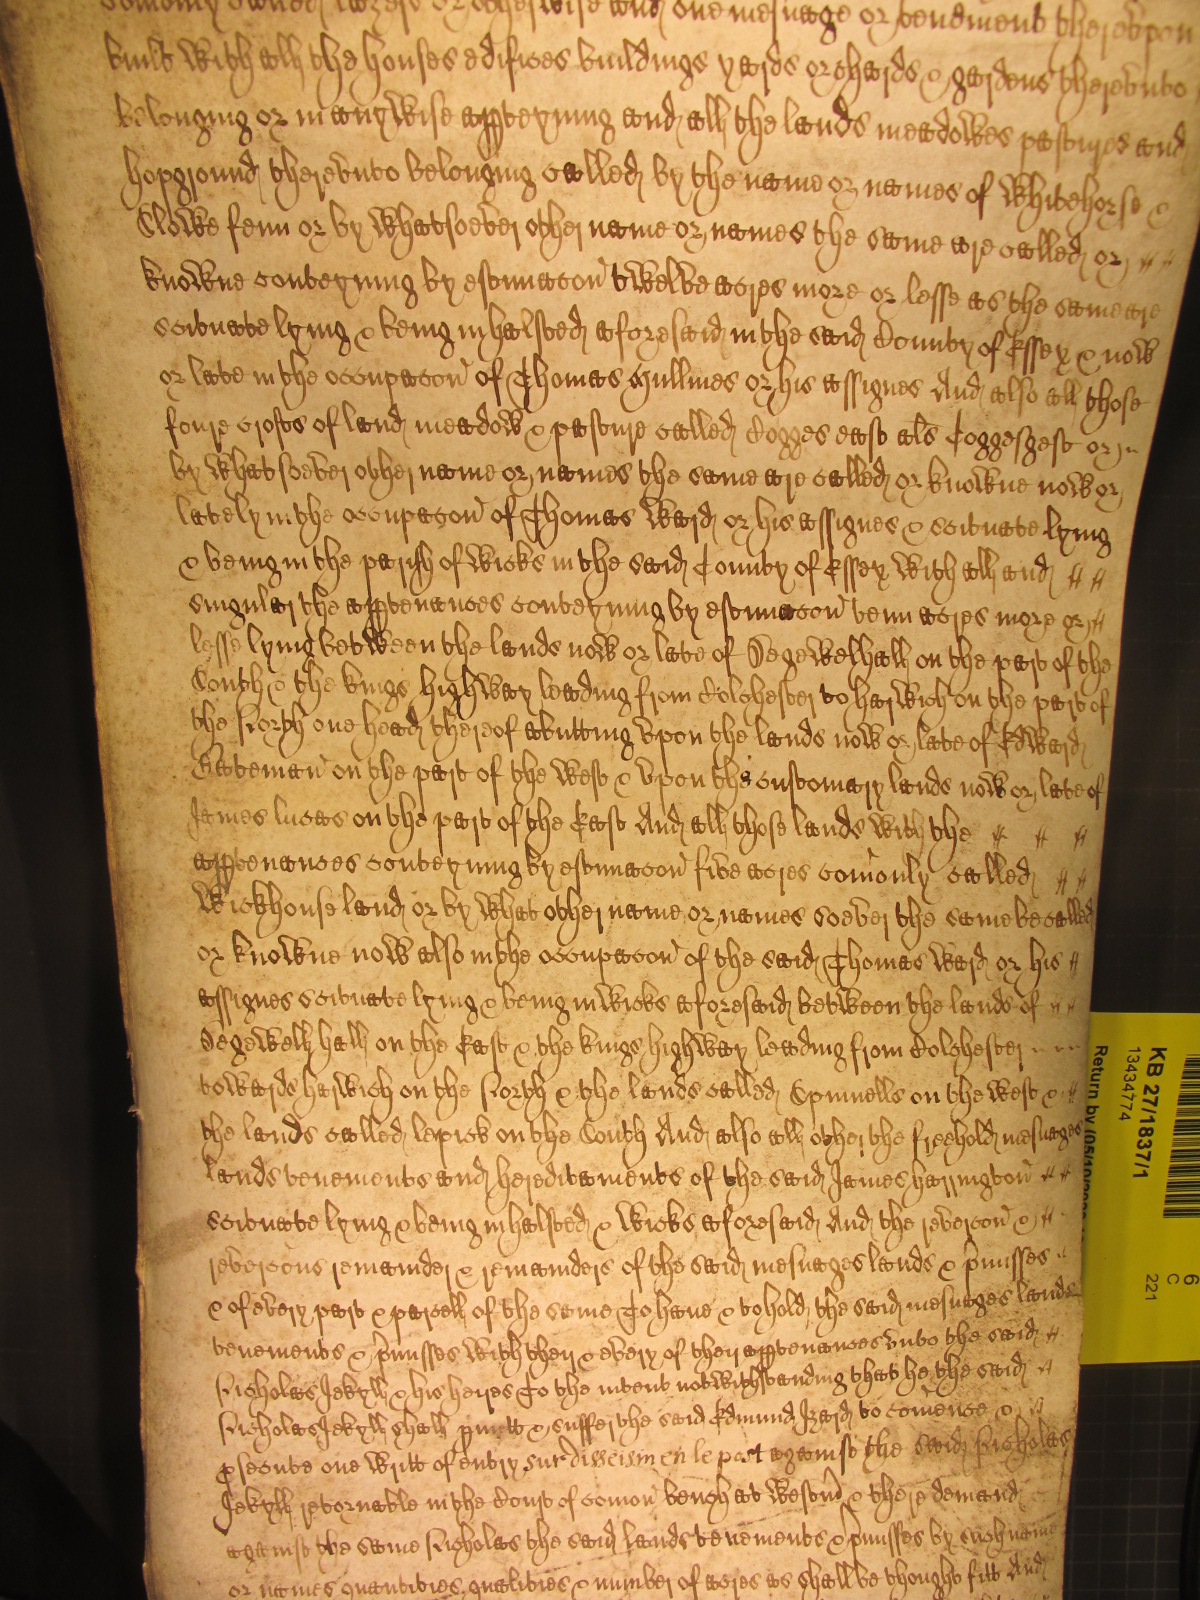 comonly called Inzers or otherwise and one mesuage or tenement therevpon
built with all the houses edifices buildings yards orchards & gardens therevnto
belonging or in any wise apperteyning and all the lands meadowes pastures and
hopground therevnto belonging called by the name or names of Whitehorse &
Clowe fenn or by whatsoever other name or names the same are called or
knowne conteyning by estimacon twelve acres more or lesse as the same are
scituate lying & being in halsted aforesaid in the said County of Essex & now
or late in the occupacon of Thomas Gullines or his assignes And also all those
foure crofts of land meadow & pasture called Cogges east als Coggeszest or
by whatsoever other name or names the same are called or knowne now or
lately in the occupacon of Thomas Ward or his assignes & scituate lying
& being in the parish of Wicks in the said County of Essex with all and
singular the apptenances conteyning by estimacon tenn acres more or
lesse lying between the lands now or late of Segewelhall on the part of the
South & the kings highway leading from Colchester to harwich on the part of
the North one head thereof abutting vpon the lands now or late of Edward
Bateman on the part of the West & vpon the customary lands now or late of
James lucas on the part of the East And all those lands with the
apptenances conteyning by estimacon five acres comonly called
Wickhouse land or by what other name or names soever the same be called
or knowne now also in the occupacon of the said Thomas Ward or his
assignes scituate lying & being in Wicks aforesaid between the lands of
Segewell hall on the East & the kings highway leading from Colchester
towards harwich on the North & the lands called Spinnells on the West &
the lands called lepick on the South And also all other the freehold mesuages
lands tenements and hereditaments of the said James harrington
scituate lying & being in halsted & Wicks aforesaid And the revercon &
revercons remainder & remainders of the said mesuages lands & p'misses
& of every part & parcell of the same To haue & to hold the said mesuages lands
tenements & p'misses with their & every of their apptenances vnto the said
Nicholas Jekyll & his heires To the intent notwithstanding that he the said
Nicholas Jekyll shall pmitt & suffer the said Edmund Izard to comence &
psecute one writt of entry sur disseisin en le post against the said Nicholas
Jekyll retornable in the Court of comon bench at Westm & there demand
against the same Nicholas the said lands tenements & p'misses by such name
or names quantities qualities & number of acres as shall be thought fitt And
KB 27/1837/1
13434774
Return by (05/10/20
6
C
221